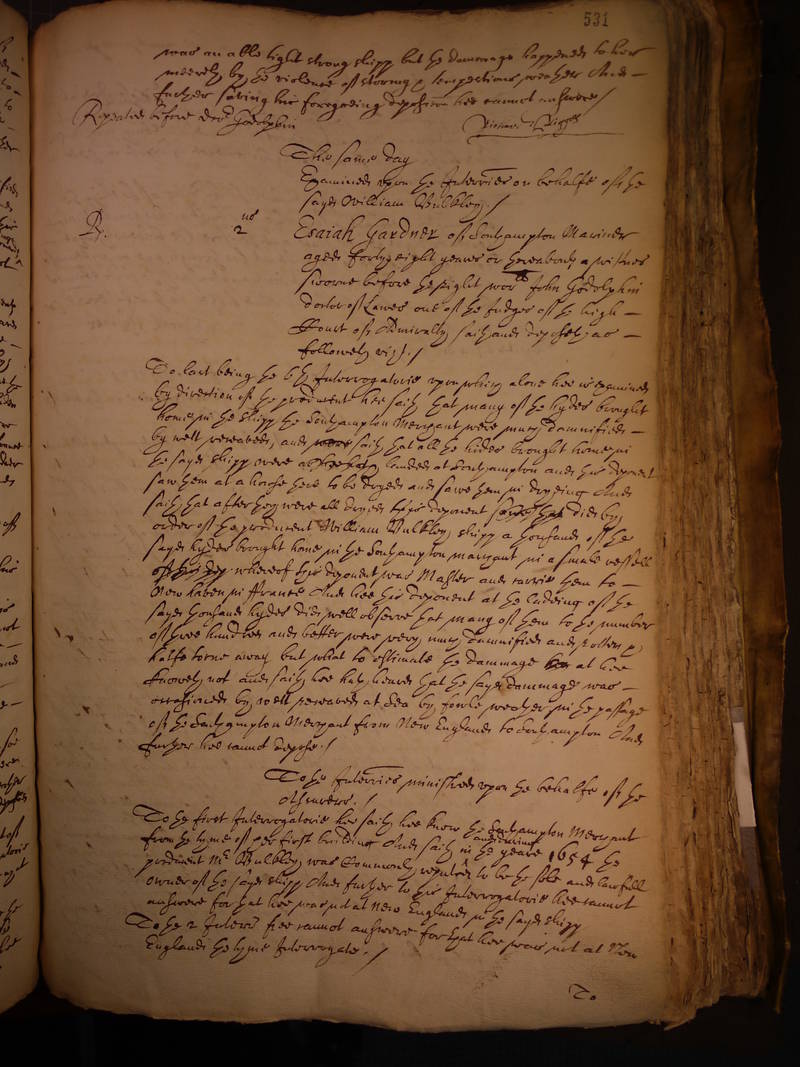 531
was an able tight strong shipp but the dammage happened to her
meerely by the violence of stormy & tempestious weather And
further saving his foregoing deposicon hee cannot answere/
Repeated before doctor Godolphin
Richard
The same day
Examined upon the Interries on behalfe of the
sayd William Bulkley./
R.
2us
Esaiah Gardner of Southampton Mariner
aged forty eight yeares or thereabouts a witnes
sworne before the right worll John Godolphin
doctor of Lawes one of the Judges of the high
Court of Admiralty saith and deposeth as
followeth vizt./
To last being the 6th Interrogatorie upon which alone hee is examined
by direction of the producent hee saith that many of the hydes brought
home in the shipp the Southampton Merchant were much damnified
by wett receaved, and saith that all the hides brought home in
the sayd shipp were landed at Southampton and this deponent
saw them at a there to be dryed and sawe them in drying And
saith that after they were all dryed this deponent did by
order of the producent William Bulkley, shipp a thousand of the
sayd hydes brought home in the Southampton marchant in a small vessell
whereof this deponent was Master and carrie them to
New haven in ffrance And hee this deponent at the ladeing of the
sayd thousand hydes did well observe that many of them to the number
of three hundred and better were very much damnified and rotten &
halfe torne away but what to estimate the dammage at hee
knoweth not and saith hee hath heard that the sayd dammage was
occasioned by wett receaved at Sea by fowle weather in the passage
of the Southampton Merchant from New England to Southampton And
further hee cannot depose./
To the Interries ministred upon the behalfe of the
To the first Interrogatorie hee saith hee knew the Southampton Merchant
from the tyme of her first building And saith in the yeare 1654 the
producent Mr Bulkley was Commonly reputed to be the sole and lawfull
owner of the sayd shipp And further to this Interrogatorie hee cannot
answere for that hee was not at New England in the sayd shipp
To the 2 Interr hee cannot answere for that hee was not at New
England the tyme Interrogate./
To